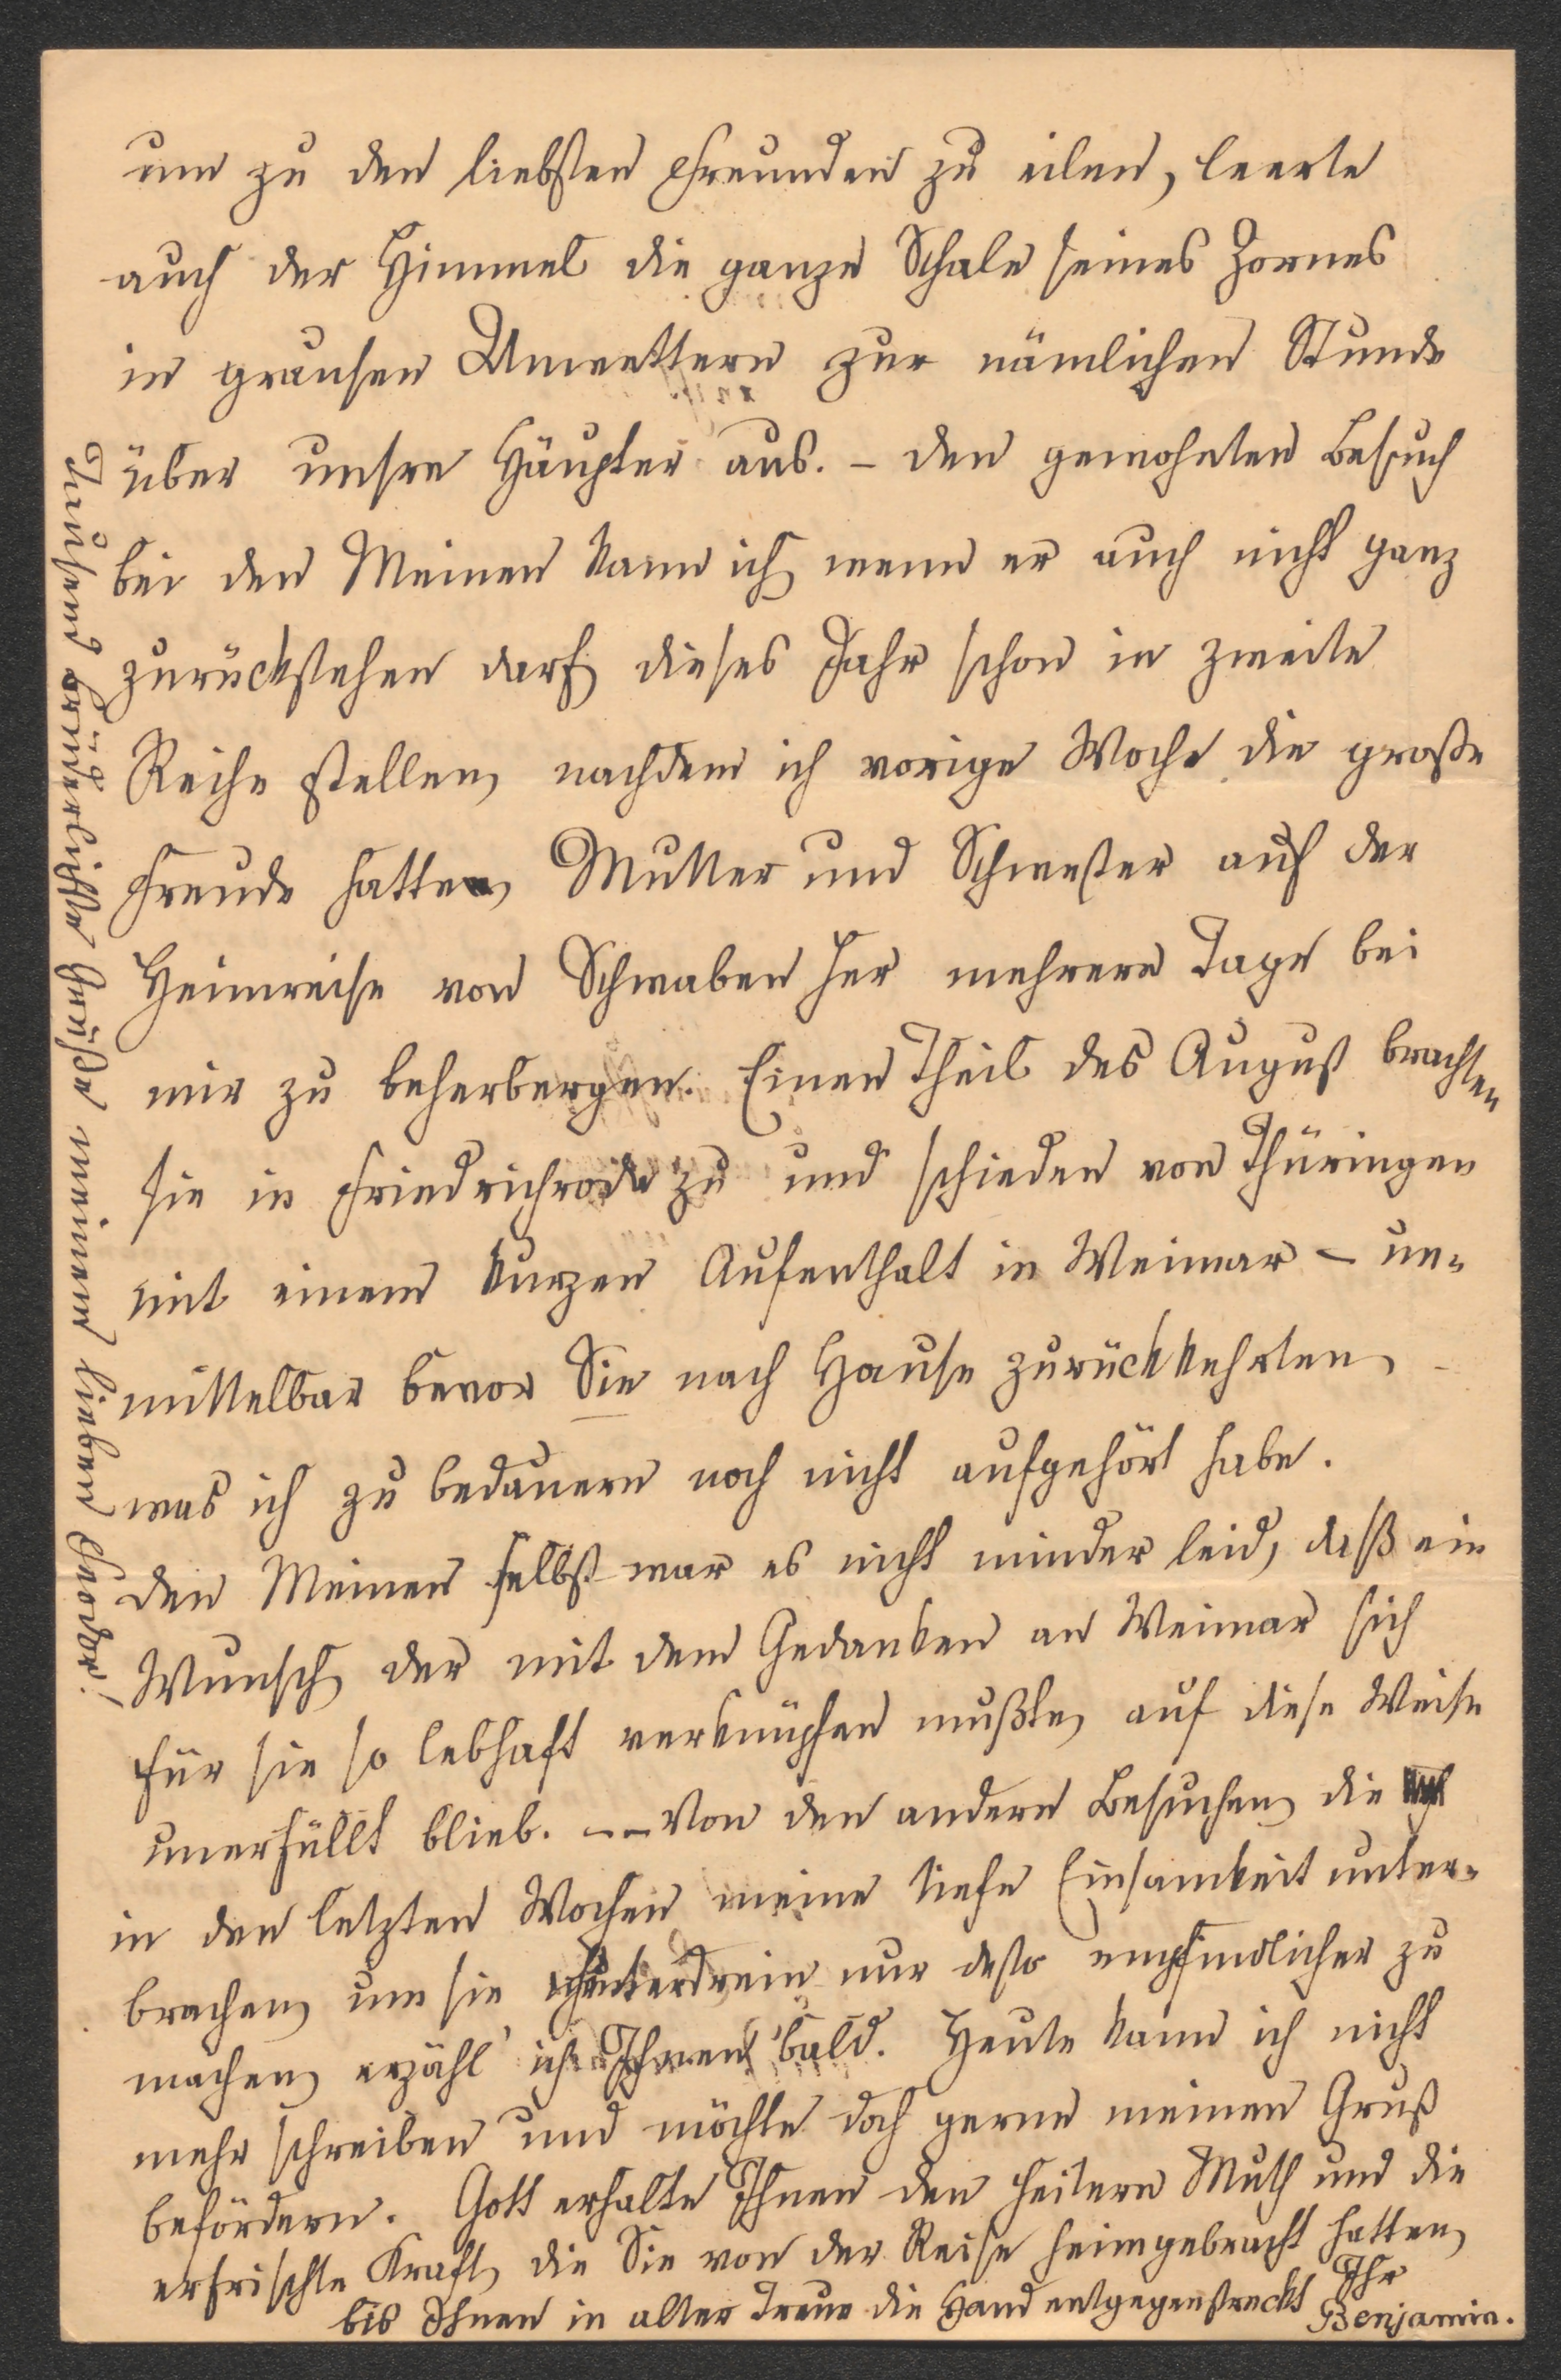 um zu den liebsten Freunden zu eilen, leerte
auch der Himmel die ganze Schale seines Zornes
in grausen Unwettern zur nämlichen Stunde
über unsre Häupter aus. – Den gewohnten Besuch
bei den Meinen kann ich, wenn er auch nicht ganz
zurückstehen darf, dieses Jahr schon in zweite
Reihe stellen, nachdem ich vorige Woche die große
Freude hatte, Mutter und Schwester auf der
Heimreise von Schwaben her mehrere Tage bei
mir zu beherbergen. Einen Theil des August brachten
sie in Friedrichrode zu und schieden von Thüringen
mit einem kurzen Aufenthalt in Weimar – un-
mittelbar bevor Sie nach Hause zurückkehrten,
was ich zu bedauern noch nicht aufgehört habe.
Den Meinen selbst war es nicht minder leid, daß ein
Wunsch, der mit dem Gedanken an Weimar sich
für sie so lebhaft verknüpfen mußte, auf diese Weise
unerfüllt blieb. –– Von den andern Besuchen, die
in den letzten Wochen meine tiefe Einsamkeit unter-
brachen, um sie hinterdrein nur desto empfindlicher zu
machen, erzähl' ich Ihnen bald. Heute kann ich nicht
mehr schreiben und möchte doch gerne meinen Gruß
befördern. Gott erhalte Ihnen den heitern Muth und die
erfrischte Kraft, die Sie von der Reise heimgebracht hatten,
bis Ihnen in alter Treue die Hand entgegenstreckt Ihr
Benjamin.
Tausend brüderlichste Grüße meinem lieben Theodor!